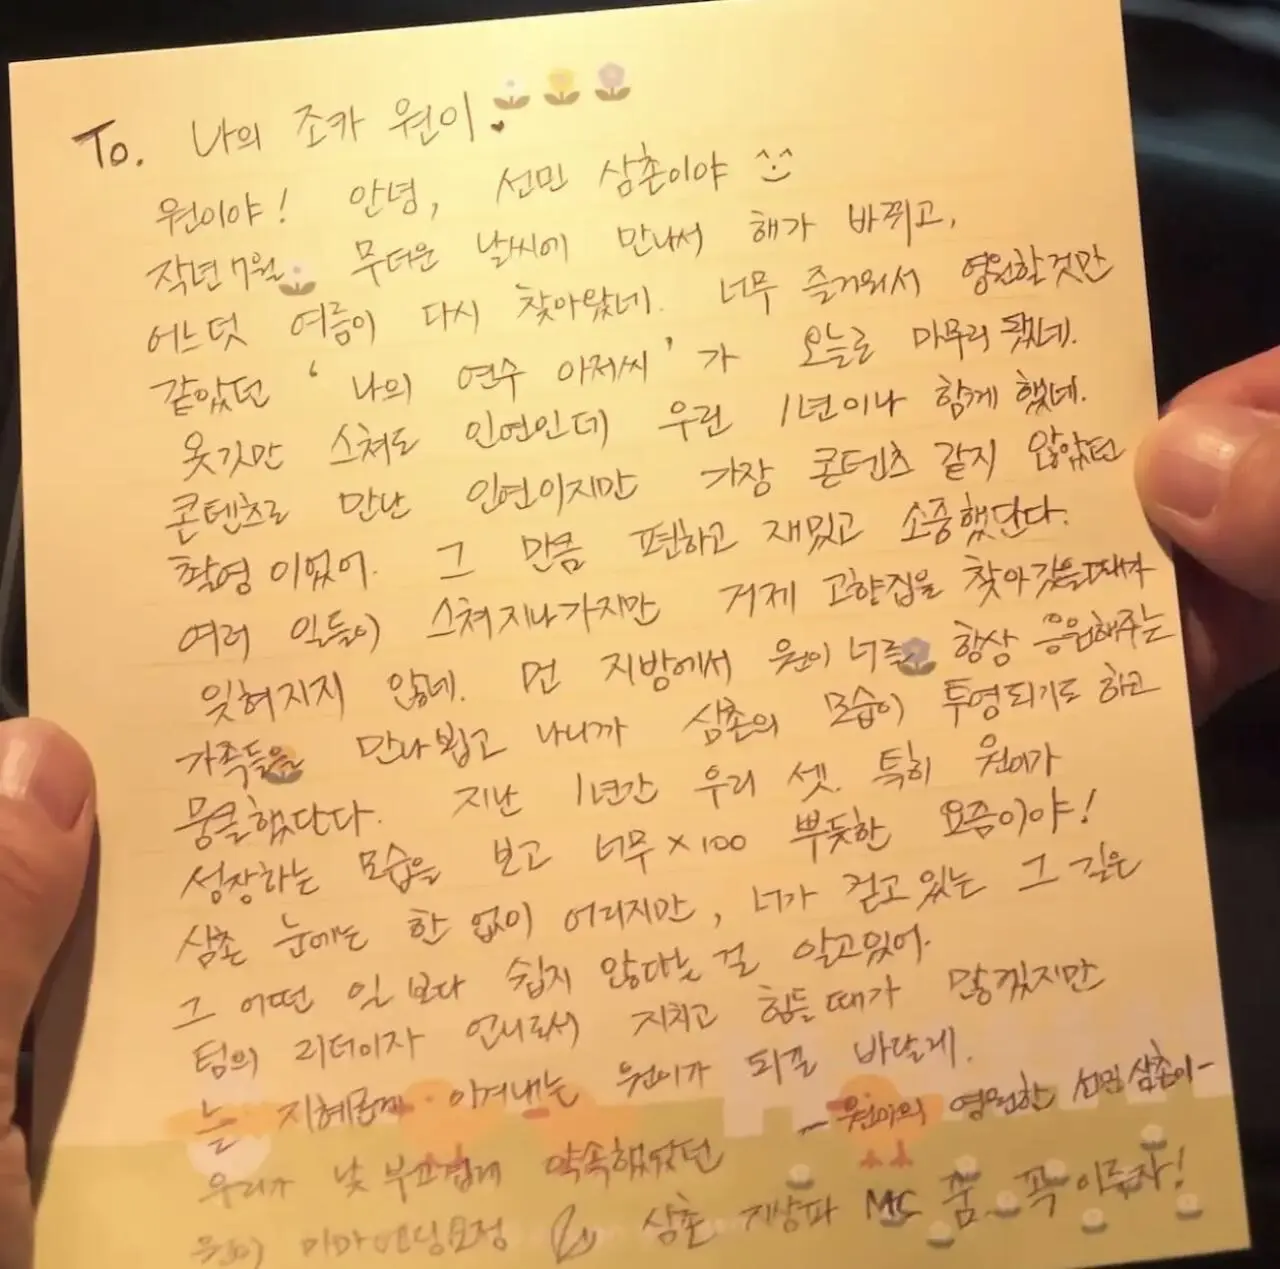 To. 나의 조카 원이♥
원이야! 안녕, 선민 삼촌이야 ^^
작년 7월 무더운 날씨에 만나서 해가 바뀌고,
어느덧 여름이 다시 찾아왔네. 너무 즐거워서 영원할것만
같았던 ' 나의 연수 아저씨 ' 가 오늘로 마무리 됐네.
옷깃만 스쳐도 인연인데 우린 1년이나 함께 했네.
콘텐츠로 만난 인연이지만 가장 콘텐츠 같지 않았던
촬영이었어. 그 만큼 편하고 재밌고 소중했단다.
여러 일들이 스쳐지나가지만 거제 고향집을 찾아갔을때가
잊혀지지 않네. 먼 지방에서 원이 너를 항상 응원해주는
가족들을 만나뵙고 나니까 삼촌의 모습이 투영되기도 하고
뭉클했단다. 지난 1년간 우리 셋. 특히 원이가
성장하는 모습을 보고 너무×100 뿌듯한 요즘이야!
삼촌 눈에는 한 없이 어리지만, 너가 걷고있는 그 길은
그 어떤 일 보다 쉽지 않다는걸 알고있어.
팀의 리더이자 언니로서 지치고 힘들때가 많겠지만
늘 지혜롭게 이겨내는 원이가 되길 바랄게.
- 원이의 영원한 선민삼촌이 -
우리가 낯 부끄럽게 약속했었던
원이 미마 엔딩요정 삼촌 지상파 MC 꿈 꼭 이루자!